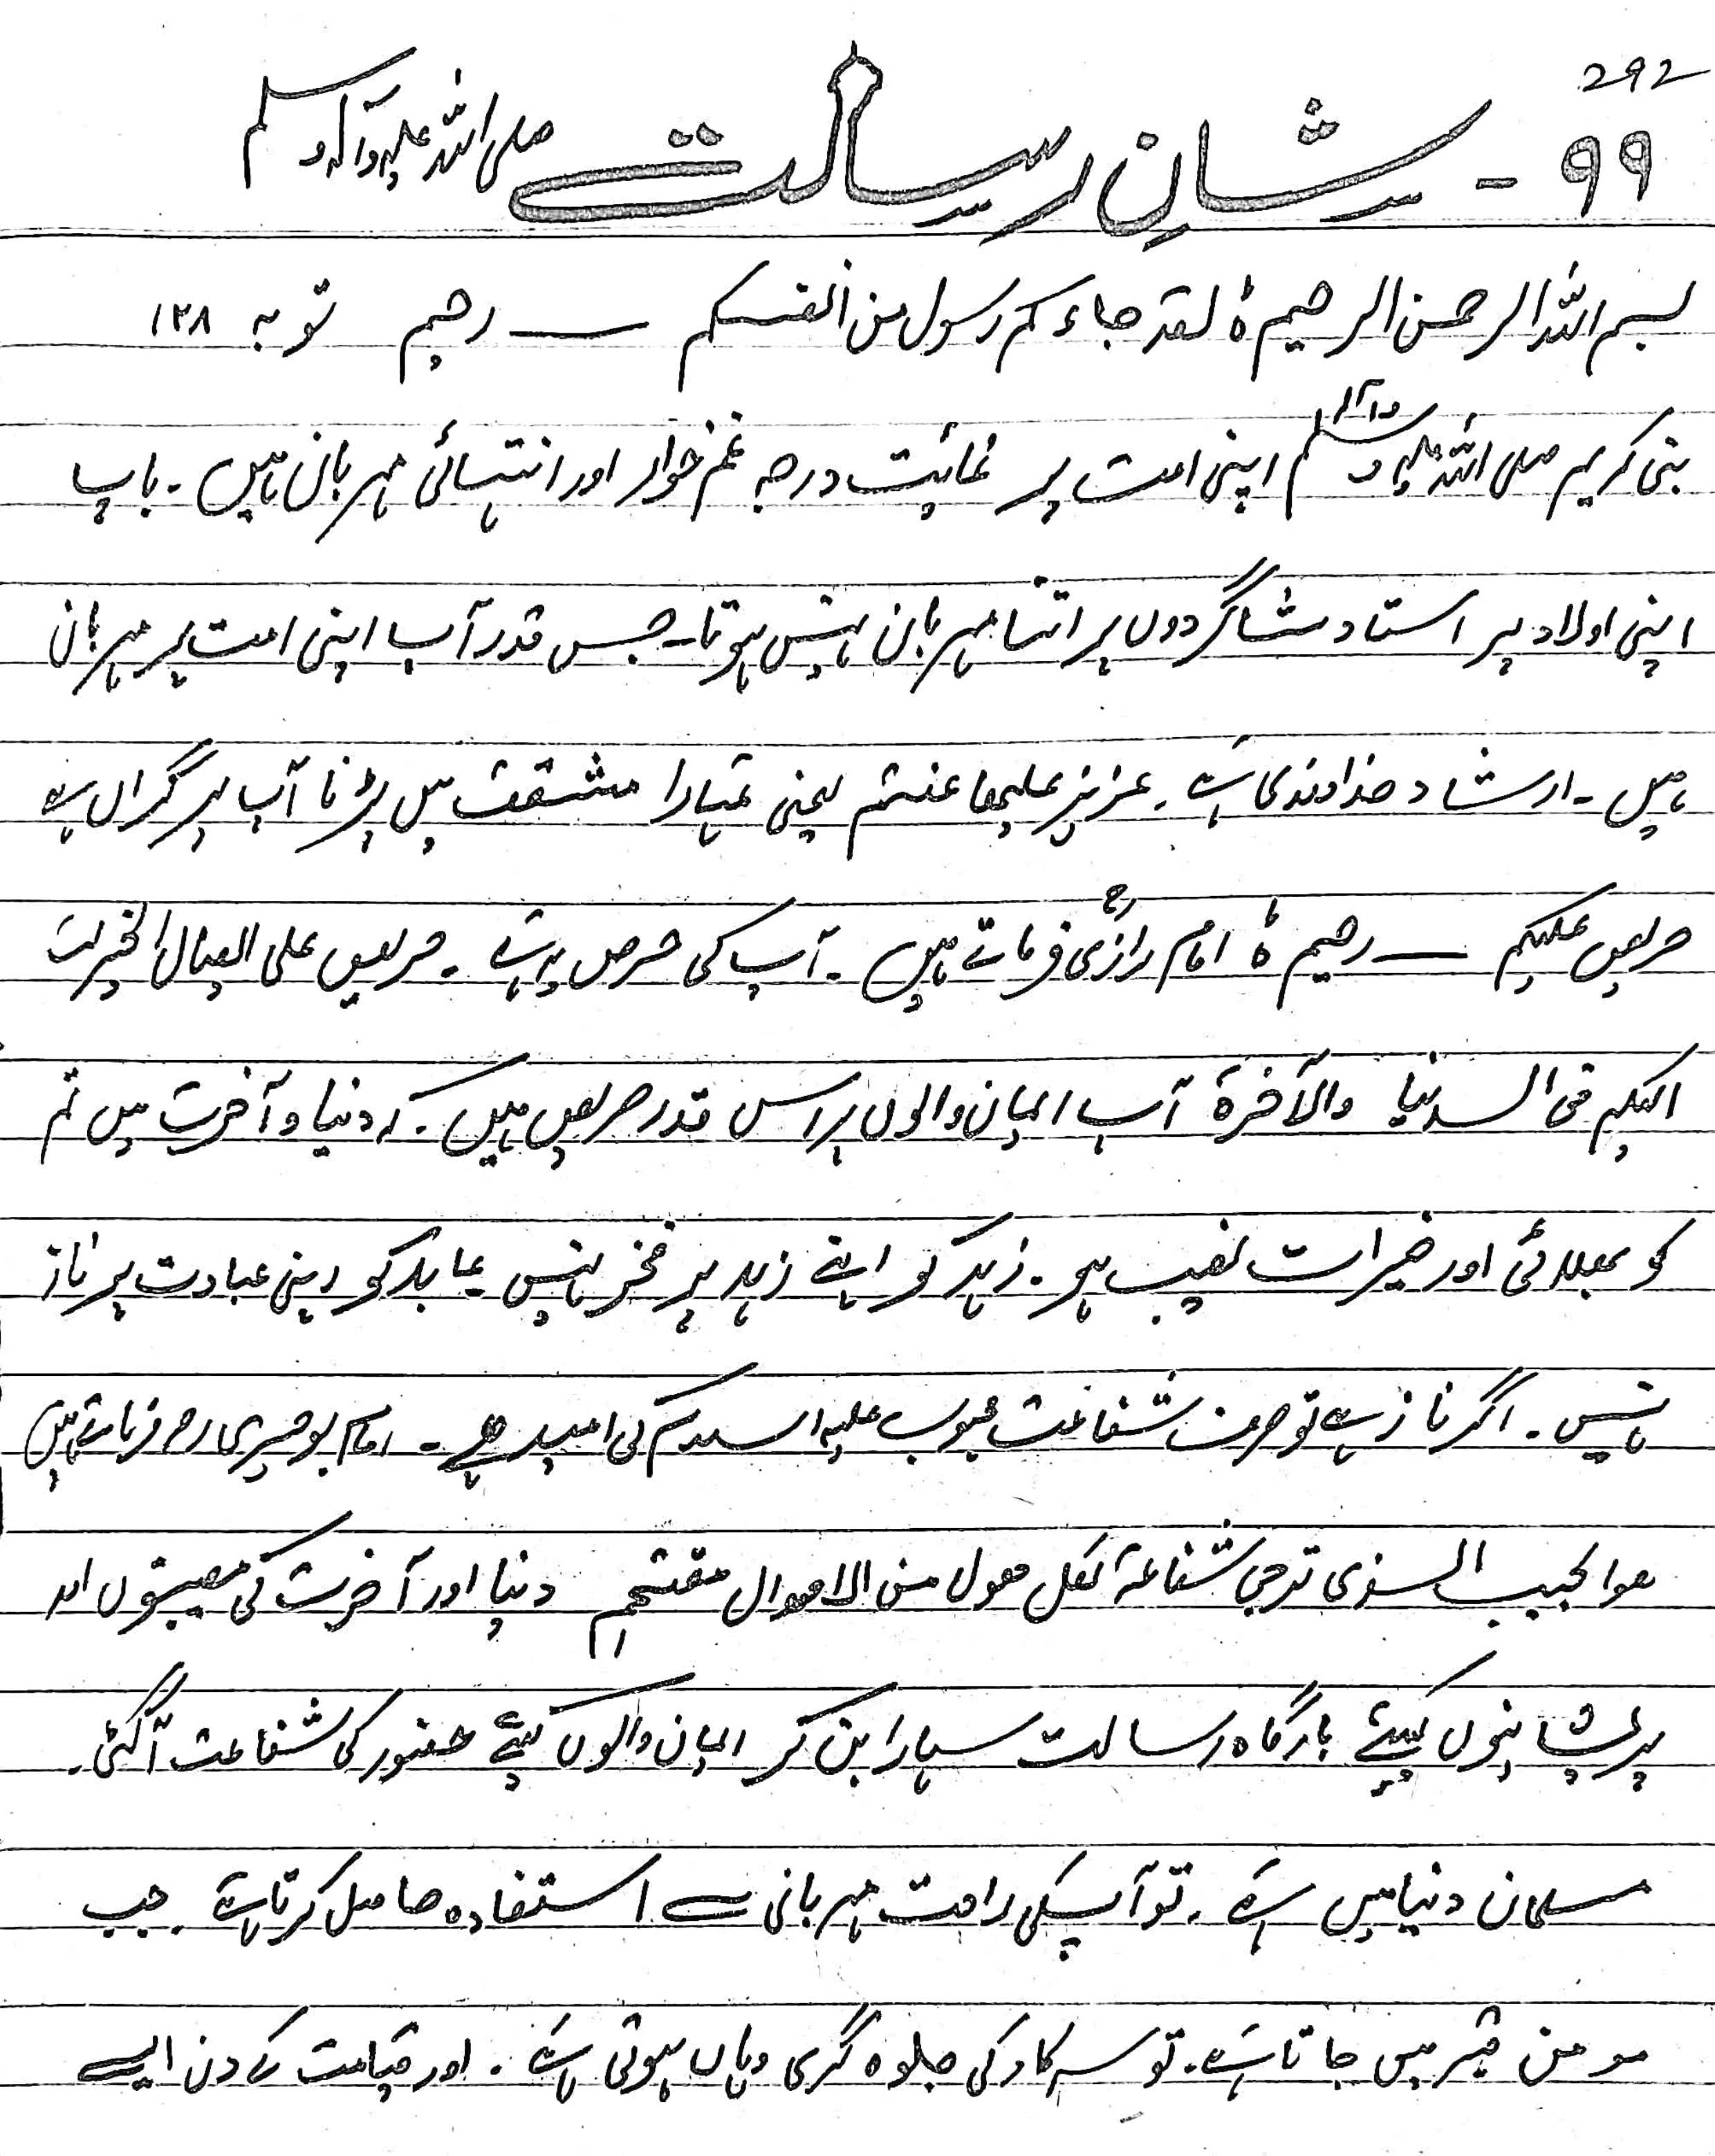 292
۹۹ - شانِ رسالت صلی اللہ علیہ وآلہ وسلم
بسم اللہ الرحمن الرحیم ہ لقد جاء کم رسول من انفسکم — رحیم توبہ ۱۲۸
نبی کریم صلی اللہ علیہ وآلہ وسلم اپنی امت پر غائیت درجہ غم خوار اور انتہائی مہربان ہیں ۔ باپ
اپنی اولاد پر استاد شاگردوں پر اتنا مہربان نہیں ہوتا ۔ جس قدر آپ اپنی امت پر مہربان
ہیں ۔ ارشاد خداوندی ہے ۔ عزیز علیہ ما عنتم یعنی تمہارا مشقت میں پڑنا آپ پر گراں ہے
حریص علیکم — رحیم ہ امام رازیؒ فرماتے ہیں ۔ آپ کی حرص یہ ہے ۔ حریص علی ایصال الخیرات
الیکم فی الدنیا والآخرۃ آپ ایمان والوں پر اس قدر حریص ہیں ۔ کہ دنیا و آخرت میں تم
کو بھلائی اور خیرات نصیب ہو ۔ زہد کو اپنے زہد پر فخر نہیں عابد کو اپنی عبادت پر ناز
نہیں ۔ اگر ناز ہے تو صرف شفاعت محبوب علیہ السلام کی امید ہے ۔ امام بوصیری رح فرماتے ہیں
ھوا لحبیب الذی ترجی شفاعۃ لکل ھول من الاھوال مقتحم دنیا اور آخرت کی مصیبتوں اور
پریشانیوں کیلئے بارگاہ رسالت سہارا بن کر ایمان والوں کیلئے حضور کی شفاعت آگئی ۔
مسلمان دنیا میں ہے ۔ تو آپکی رافت مہربانی سے استفادہ حاصل کرتا ہے ۔ جب
مومن قبر میں جاتا ہے ۔ تو سرکار کی جلوہ گری وہاں ہوتی ہے ۔ اور قیامت کے دن ایسے